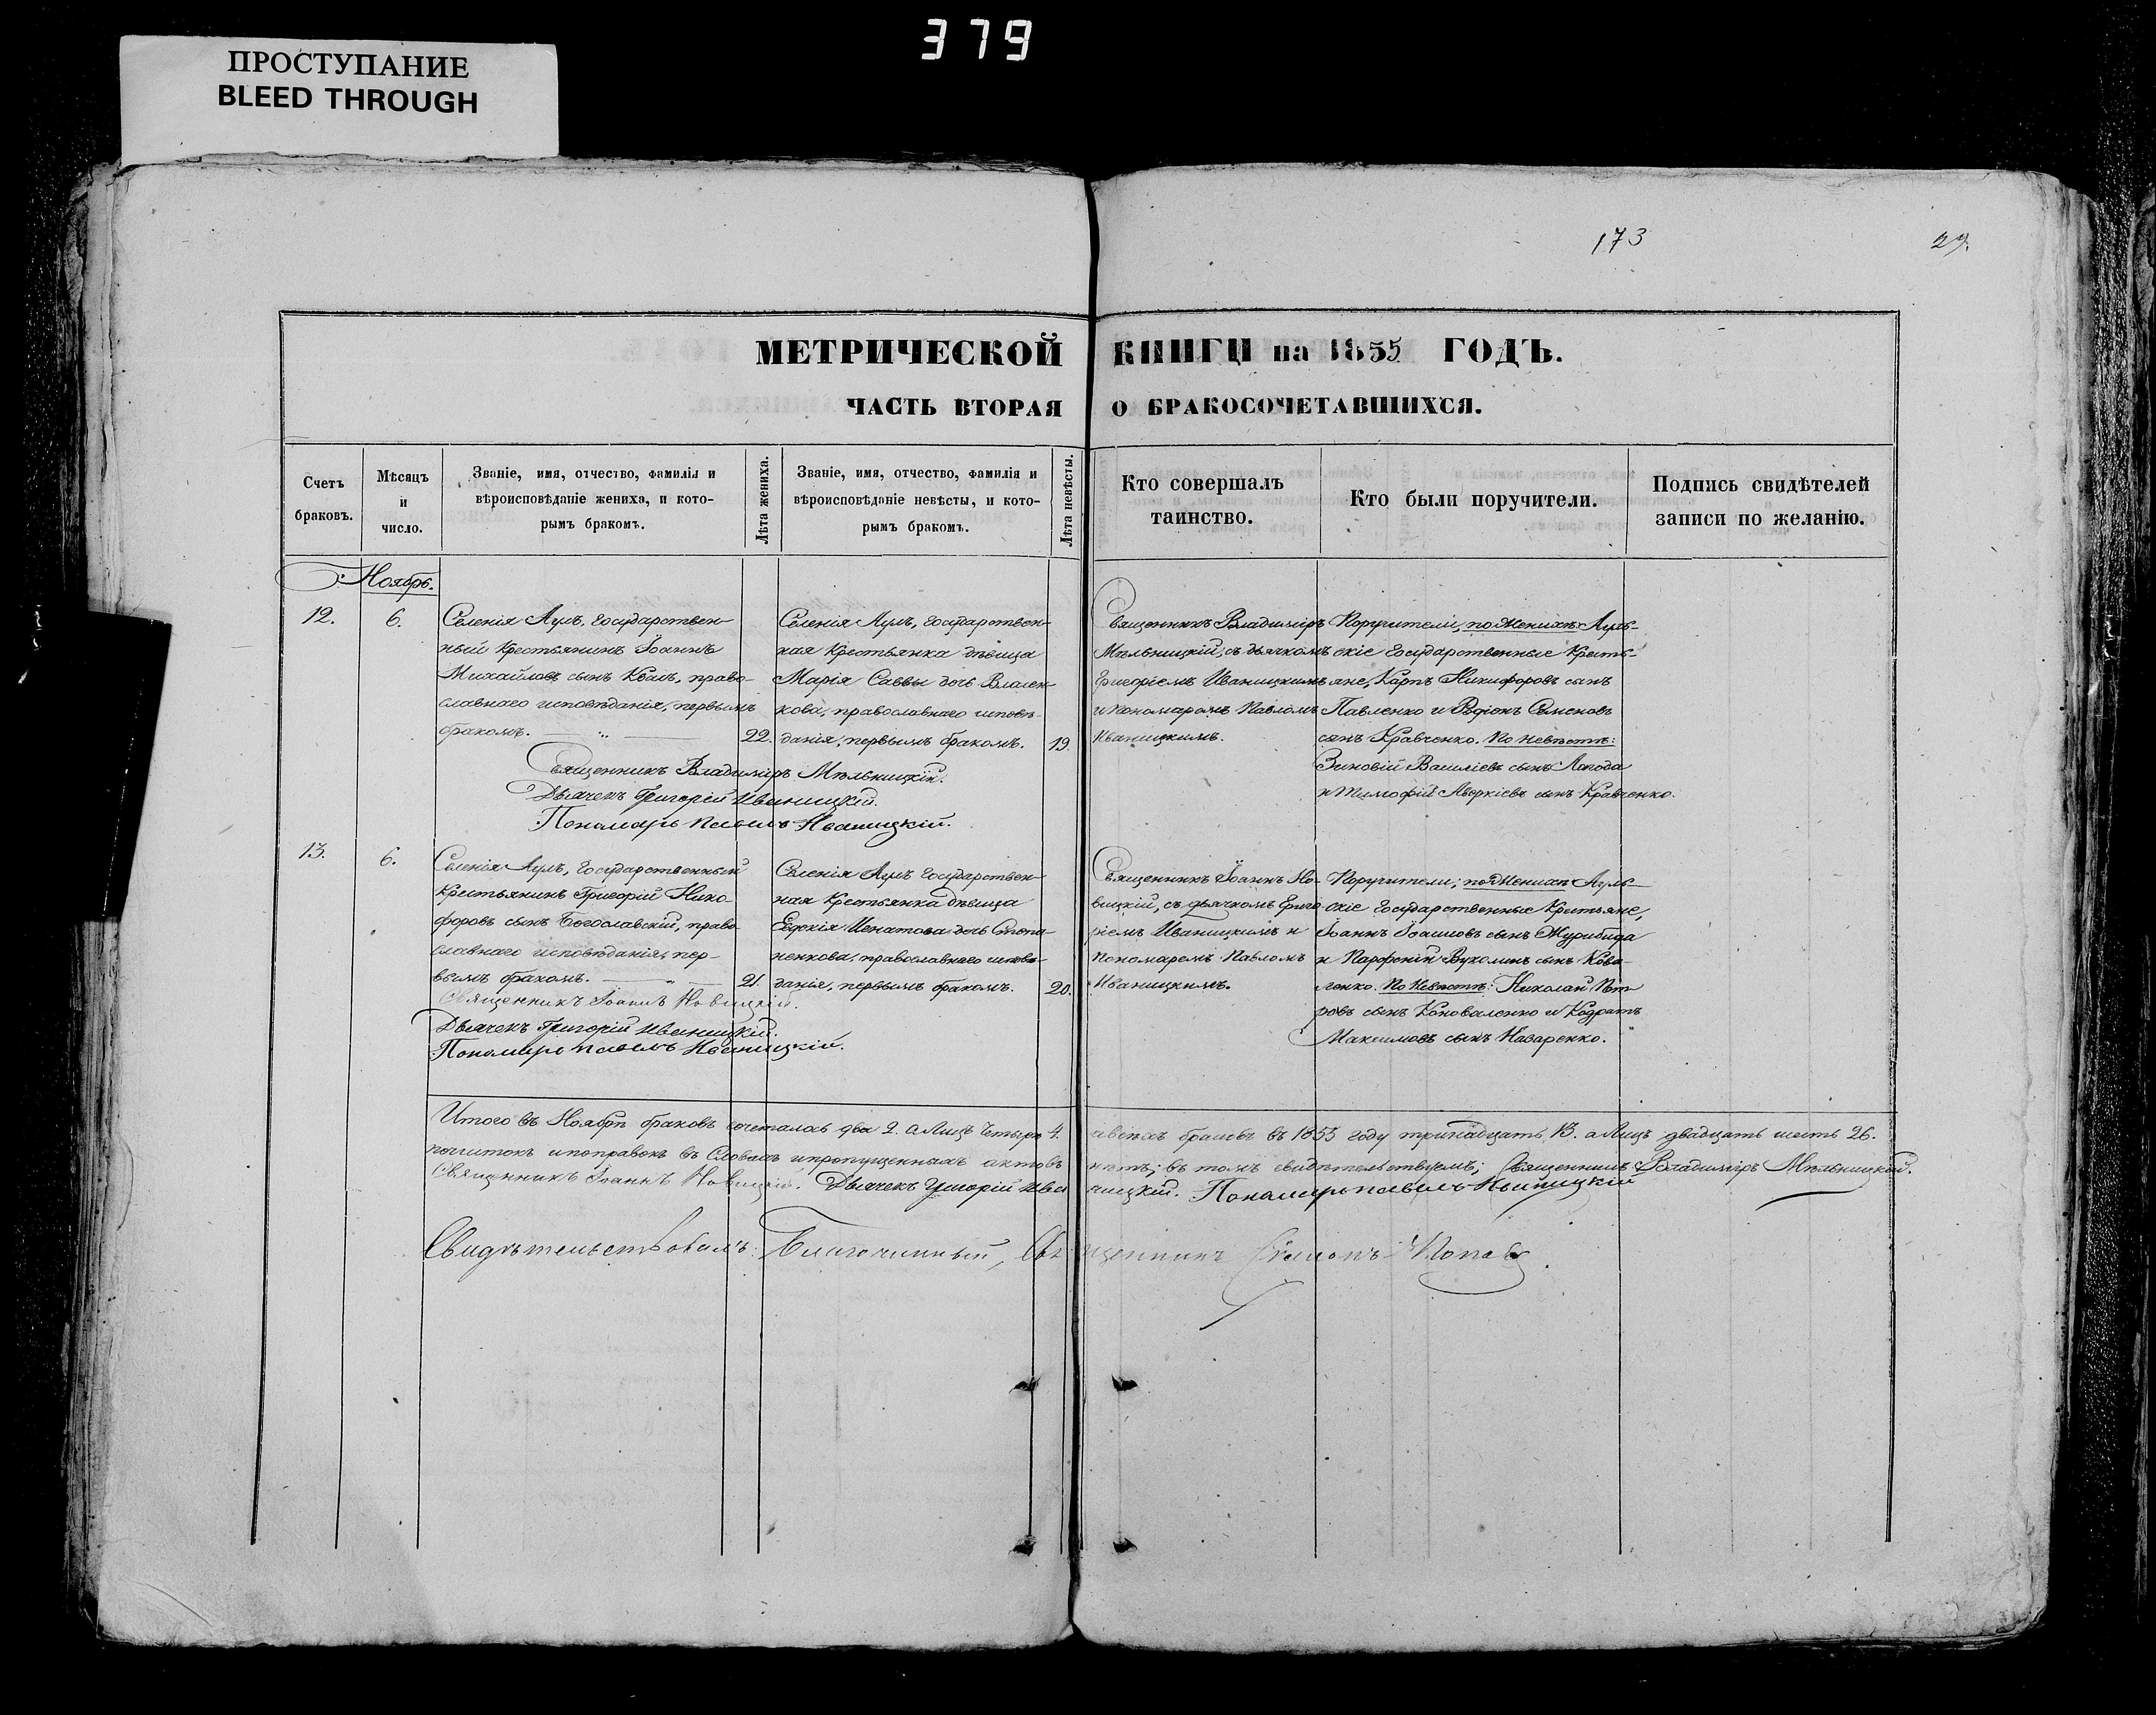 379
ПРОСТУПАНИЕ
BLEED THROUGH
173
29.
МЕТРИЧЕСКОЙ КНИГИ на 1855 ГОДЪ.
ЧАСТЬ ВТОРАЯ О БРАКОСОЧЕТАВШИХСЯ.
Счетъ
браковъ.
Мѣсяцъ
и
число.
Званіе, имя, отчество, фамилія и
вѣроисповѣданіе жениха, и кото-
рымъ бракомъ.
Лѣта жениха.
Званіе, имя, отчество, фамилія и
вѣроисповѣданіе невѣсты, и кото-
рымъ бракомъ.
Лѣта невѣсты.
Кто совершалъ
таинство.
Кто были поручители.
Подпись свидѣтелей
записи по желанію.
Ноябрь.
12.
6.
Селенія Аулъ, Государствен-
ный Крестьянинъ Іоаннъ
Михайловъ сынъ право-
славнаго исповѣданія, первымъ
бракомъ.
22.
Селенія Аулъ, Государствен-
ная Крестьянка дѣвица
Марія Саввы дочь Власен-
кова, православнаго исповѣ-
данія, первымъ бракомъ.
19.
Священникъ Владиміръ
Мѣльницкій, съ дьячкомъ
Григоріемъ Иваницкимъ
и пономаремъ Павломъ
Иваницкимъ.
Поручители; по Женихѣ Ауль-
скіе Государственные Кресть-
яне, Карпъ Никифоровъ сынъ
Павленко и Родіонъ Семеновъ
сынъ Кравченко. По Невѣстѣ:
Зиновій Василіевъ сынъ Лагода
и Тимофій Аверкіевъ сынъ Кравченко.
Священникъ Владиміръ Мѣльницкій.
Дьячекъ Григорій Иваницкій.
Пономарь Павелъ Иваницкій.
13.
6.
Селенія Аулъ, Государственный
Крестьянинъ Григорій Ники-
форовъ сынъ Богославскій, право-
славнаго исповѣданія, пер-
вымъ бракомъ.
21.
Селенія Аулъ Государствен-
ная Крестьянка дѣвица
Евдокія Игнатова дочь Степа-
ненкова, православнаго исповѣ-
данія, первымъ бракомъ.
20.
Священникъ Іоаннъ Но-
вицкій, съ дьячкомъ Григо-
ріемъ Иваницкимъ и
пономаремъ Павломъ
Иваницкимъ.
Поручители; по Женихѣ Ауль-
скіе Государственные Крестьяне,
Іоаннъ сынъ Журибида
и Парфеній сынъ Кова-
ленко. По Невѣстѣ: Николай Пет-
ровъ сынъ Коноваленко и Кодратъ
Максимовъ сынъ Назаренко.
Священникъ Іоаннъ Новицкій.
Дьячекъ Григорій Иваницкій.
Пономарь Павелъ Иваницкій.
Итого въ Ноябрѣ браковъ сочеталось два 2. а Лицъ Четыре 4. а всѣхъ браковъ въ 1855 году тринадцать 13. а Лицъ двадцать шесть 26.
почистокъ и поправокъ въ Словахъ и пропущенныхъ актовъ нѣтъ; въ томъ свидѣтельствуемъ; Священникъ Владиміръ Мѣльницкій.
Священникъ Іоаннъ Новицкій. Дьячекъ Григорій Иваницкій. Пономарь Павелъ Иваницкій
Свидѣтельствовалъ: Благочинный, Священникъ Симеонъ Поповъ.